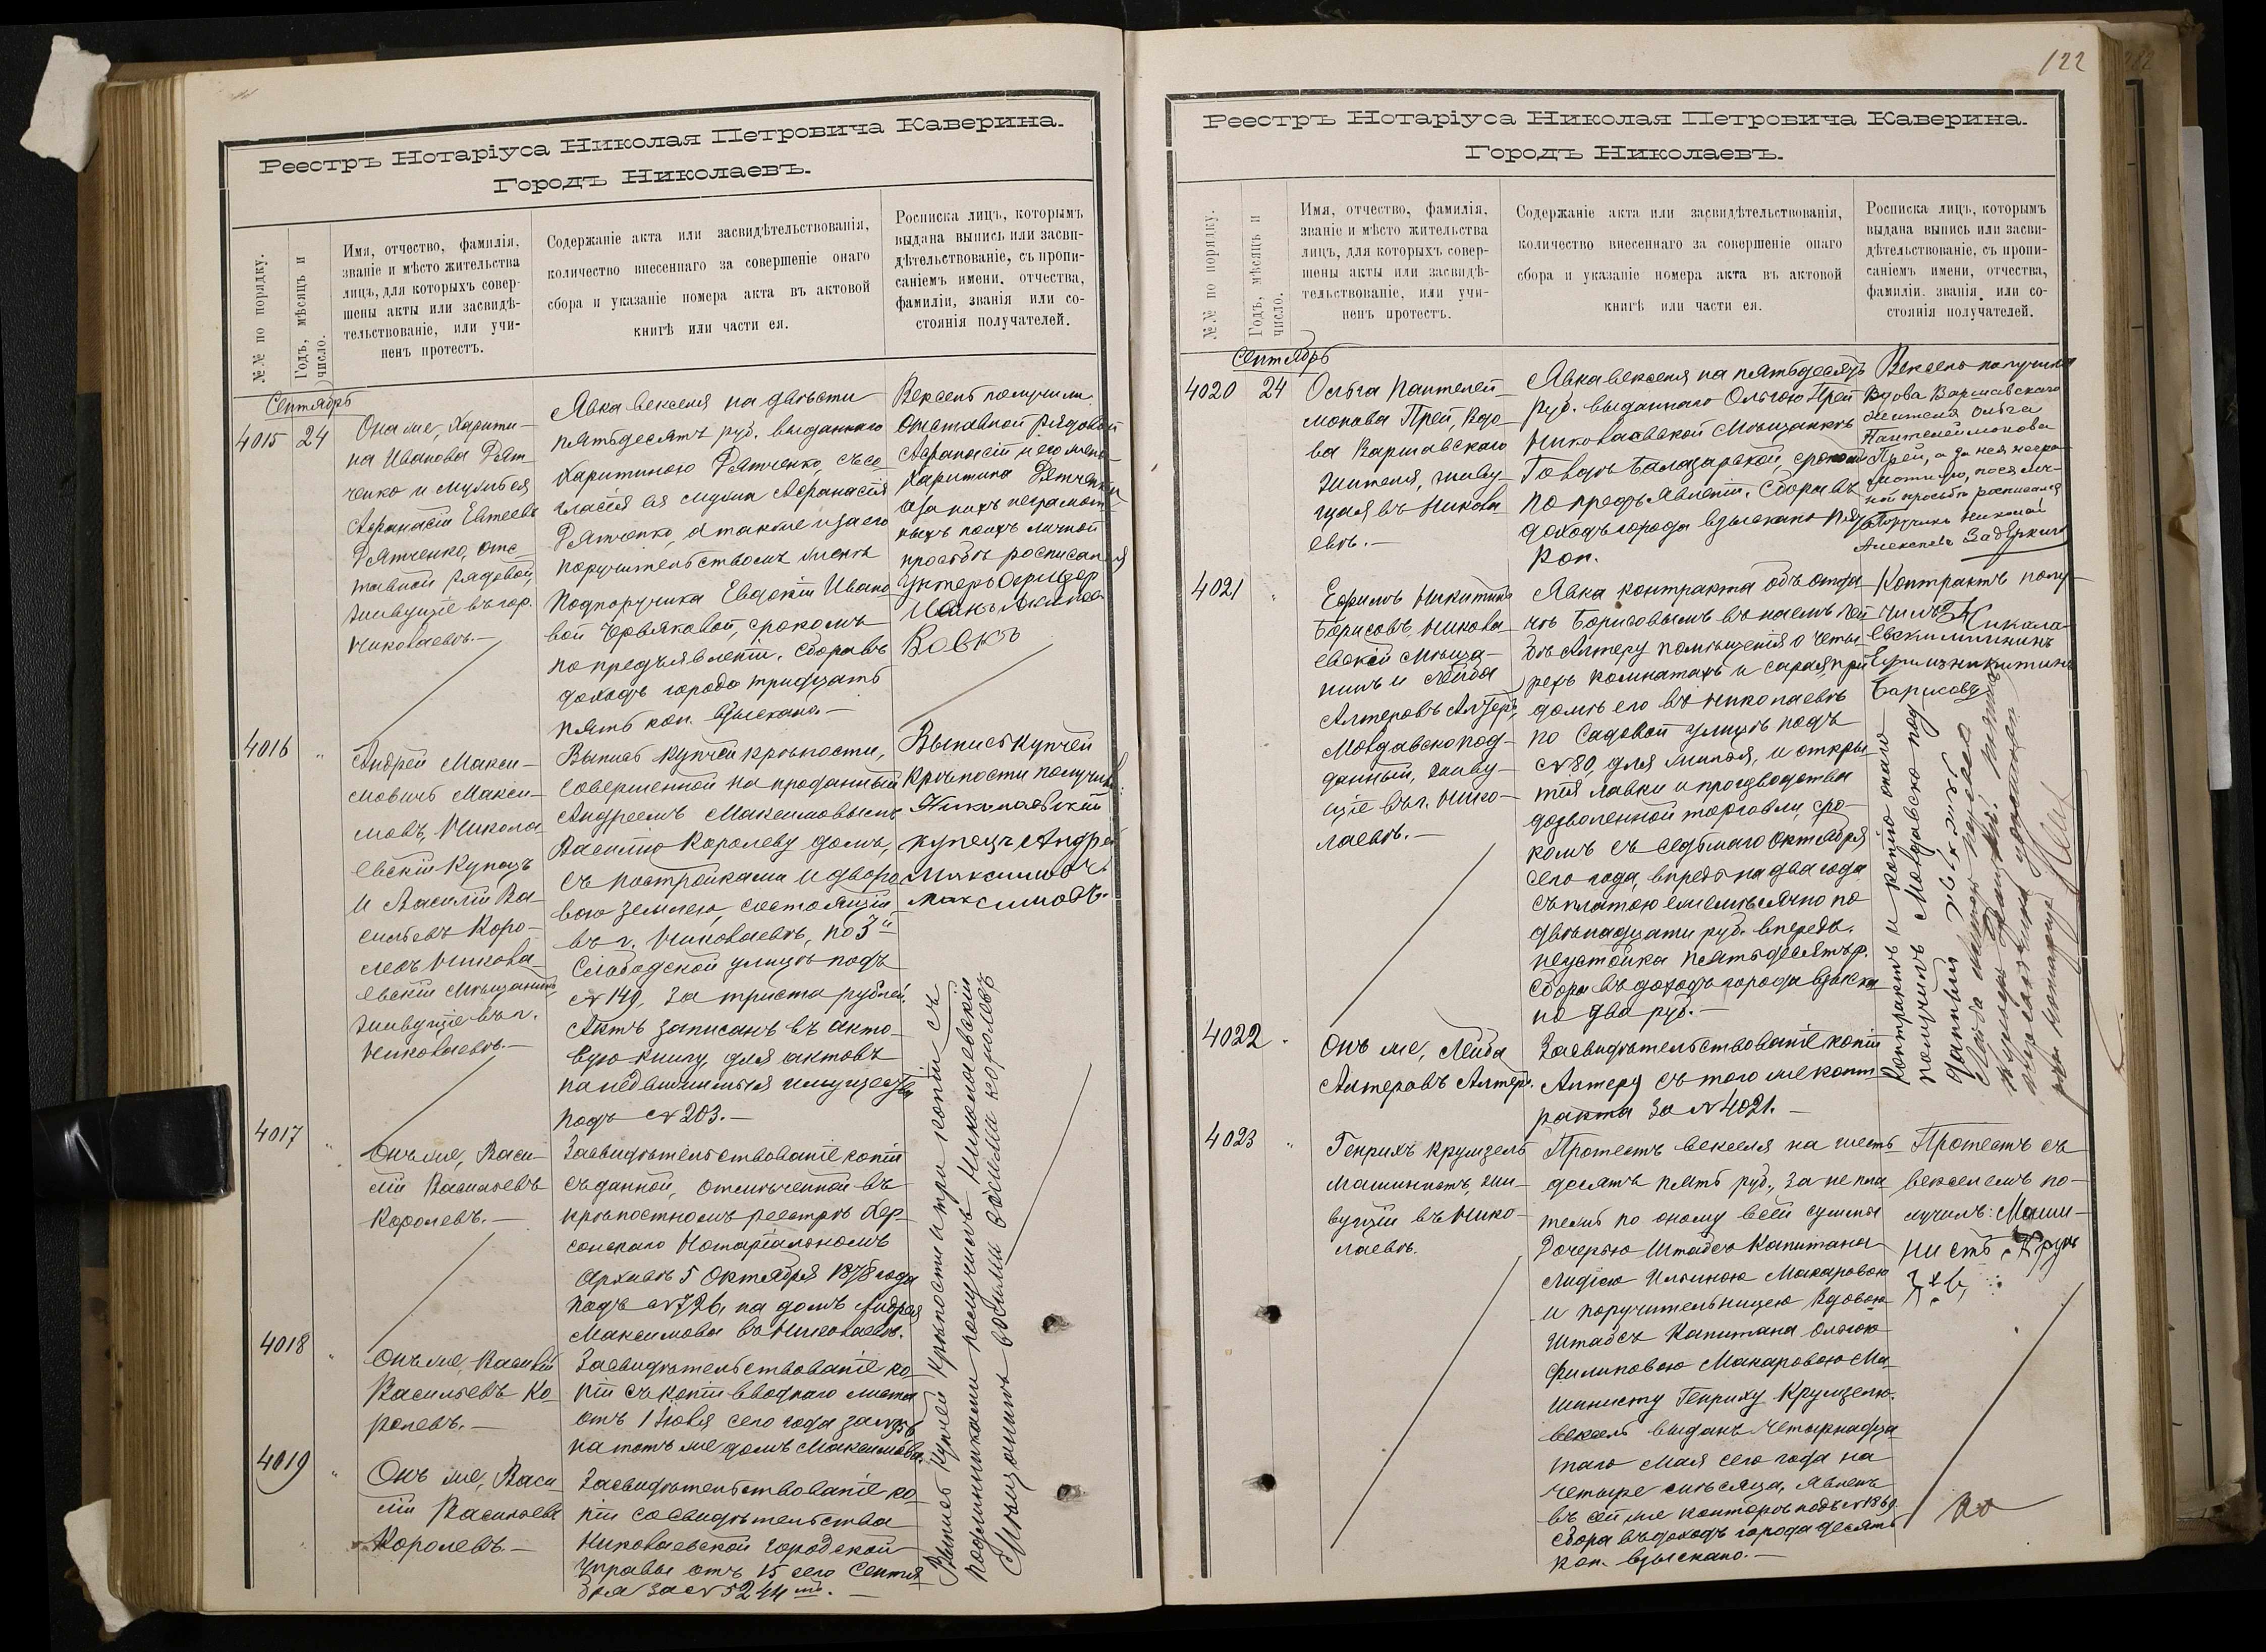 Реестръ Нотаріуса Николая Петровича Каверина.
Городъ Николаевъ.
№№ по порядку.
Годъ, мѣсяцъ и
число.
Имя, отчество, фамилія,
званіе и мѣсто жительства
лицъ, для которыхъ совер-
шены акты или засвидѣ-
тельствованіе, или учи-
ненъ протестъ.
Содержаніе акта или засвидѣтельствованія,
количество внесеннаго за совершеніе онаго
сбора и указаніе номера акта въ актовой
книгѣ или части ея.
Росписка лицъ, которымъ
выдана выпись или засви-
дѣтельствованіе, съ пропи-
саніемъ имени, отчества,
фамиліи, званія или со-
стоянія получателей.
Сентябрь
4015 24
Она же, Харити-
на Иванова Дят-
ченко и мужъ ея
Афанасій Евтеевъ
Дятченко, отс-
тавной рядовой,
живущіе въ гор.
Николаевѣ.—
Явка векселя на двѣсти
пятьдесятъ руб. выданнаго
Харитиною Дятченко, съ со-
гласія ея мужа Афанасія
Дятченко, а также и за его
поручительствомъ женѣ
Подпоручика Евдокіи Ивано
вой Червяковой, срокомъ
по предъявленіи. Сбора въ
доходъ города тридцать
пять коп. взыскано.—
Вексель получили
Отставной рядовой
Афанасій и его жена
Харитина Дятченки
а за нихъ неграмот
ныхъ по ихъ личной
просьбѣ росписался
Унтеръ Офицер
Вовкъ
4016 "
Андрей Макси-
мовичъ Макси-
мовъ, Никола-
евскій Купецъ
и Василій Ва-
сильевъ Коро-
левъ Никола-
евскій Мѣщанинъ
живущіе въ г.
Николаевѣ.—
Выпись купчей крѣпости,
совершенной на проданный
Андреемъ Максимовымъ
Василію Королеву домъ,
съ постройками и дворо
вою землею, состоящій
въ г. Николаевѣ, по 3й
Слободской улицѣ подъ
№ 149, за триста рублей.
Актъ записанъ въ акто-
вую книгу, для актовъ
на недвижимыя имущества
подъ № 203.—
Выпись Купчей
Крѣпости получилъ:
Николаевскій
купецъ Андрей
Максимовъ
Максимовъ.
4017 "
Онъ же, Васи-
лій Васильевъ
Королевъ.—
Засвидѣтельствованіе копіи
съ данной, отмѣченной въ
крѣпостномъ реестрѣ Хер-
сонскаго Нотаріальномъ
Архивѣ 5 Октября 1878 года
подъ № 726, на домъ Андрея
Максимова въ Николаевѣ.
4018 "
Онъ же, Василій
Васильевъ Ко-
ролевъ.—
Засвидѣтельствованіе ко-
піи съ копіи вводнаго листа
отъ 1 Іюля сего года за №
на тотъ же домъ Максимова.
4019 "
Онъ же, Васи-
лій Васильевъ
Королевъ.—
Засвидѣтельствованіе ко-
піи со свидѣтельства
Николаевской Городской
Управы отъ 15 сего Сентя-
бря за № 5244мъ.—
Выпись Купчей Крѣпости и три копіи съ
подлинниками получилъ Николаевскій
Мѣщанинъ Королевъ
122
Реестръ Нотаріуса Николая Петровича Каверина.
Городъ Николаевъ.
№№ по порядку.
Годъ, мѣсяцъ и
число.
Имя, отчество, фамилія,
званіе и мѣсто жительства
лицъ, для которыхъ совер-
шены акты или засвидѣ-
тельствованіе, или учи-
ненъ протестъ.
Содержаніе акта или засвидѣтельствованія,
количество внесеннаго за совершеніе онаго
сбора и указаніе номера акта въ актовой
книгѣ или части ея.
Росписка лицъ, которымъ
выдана выпись или засви-
дѣтельствованіе, съ пропи-
саніемъ имени, отчества,
фамиліи. званія или со-
стоянія получателей.
Сентябрь
4020 24
Ольга Пантелей-
монова Прей, Вдо-
ва Варшавскаго
жителя, живу-
щая въ Никола-
евѣ.—
Явка векселя на пятьдесятъ
руб. выданнаго Ольгою Прей
Николаевской Мѣщанкѣ
срокомъ
по предъявленіи. Сбора въ
доходъ города взыскано пять
коп.
Вексель получила
Вдова Варшавскаго
жителя Ольга
Пантелеймонова
Прей, а за нея негра-
мотную, по ея лич-
ной просьбѣ росписался
Поручикъ Николай
Алексеевъ
4021 "
Ефимъ Никитинъ
Борисовъ, Никола-
евскій Мѣща-
нинъ и Лейба
Алтеровъ Алтеръ,
Молдавскоподданный, живу-
щіе въ г. Нико-
лаевѣ.—
Явка контракта объ отда-
чѣ Борисовымъ въ наемъ Лей
бѣ Алтеру помѣщенія о четы-
рехъ комнатахъ и сарая, при
домѣ его въ Николаевѣ
по Садовой улицѣ подъ
№ 80, для жилья, и откры-
тія лавки и производства
дозволенной торговли, сро-
комъ съ седьмаго Октября
сего года, впредь на два года
съ платою ежемѣсячно по
двѣнадцати руб. впередъ.
Неустойка пятьдесятъ р.
Сбора въ доходъ города взыска
но два руб.—
Контрактъ полу-
чилъ Никола-
евски мищининъ
Ефимъ Никитинъ
Барисовъ
Контрактъ и копію онаго
получилъ Молдавско под
данный
4022 "
Онъ же, Лейба
Алтеровъ Алтеръ.
Засвидѣтельствованіе копіи
Алтеру съ того же конт-
ракта за № 4021.—
4023 "
Генрихъ Крумзель
Машинистъ, жи-
вущій въ Нико-
лаевѣ.
Протестъ векселя на шесть
десятъ пять руб., за не пла-
тежъ по оному всей суммы
Дочерью Штабсъ Капитана
Лидіею Ильиною Макаровою
и поручительницею вдовою
Штабсъ Капитана Ольгою
Филиповою Макаровою Ма-
шинисту Генриху Крумзелю.
Вексель выданъ четырнадца-
таго Мая сего года на
четыре мѣсяца, явленъ
въ сей же конторѣ подъ № 1869.
Сбора въ доходъ города десять
коп. взыскано.—
Протестъ съ
векселемъ по-
лучилъ: Маши-
нистъ Крум